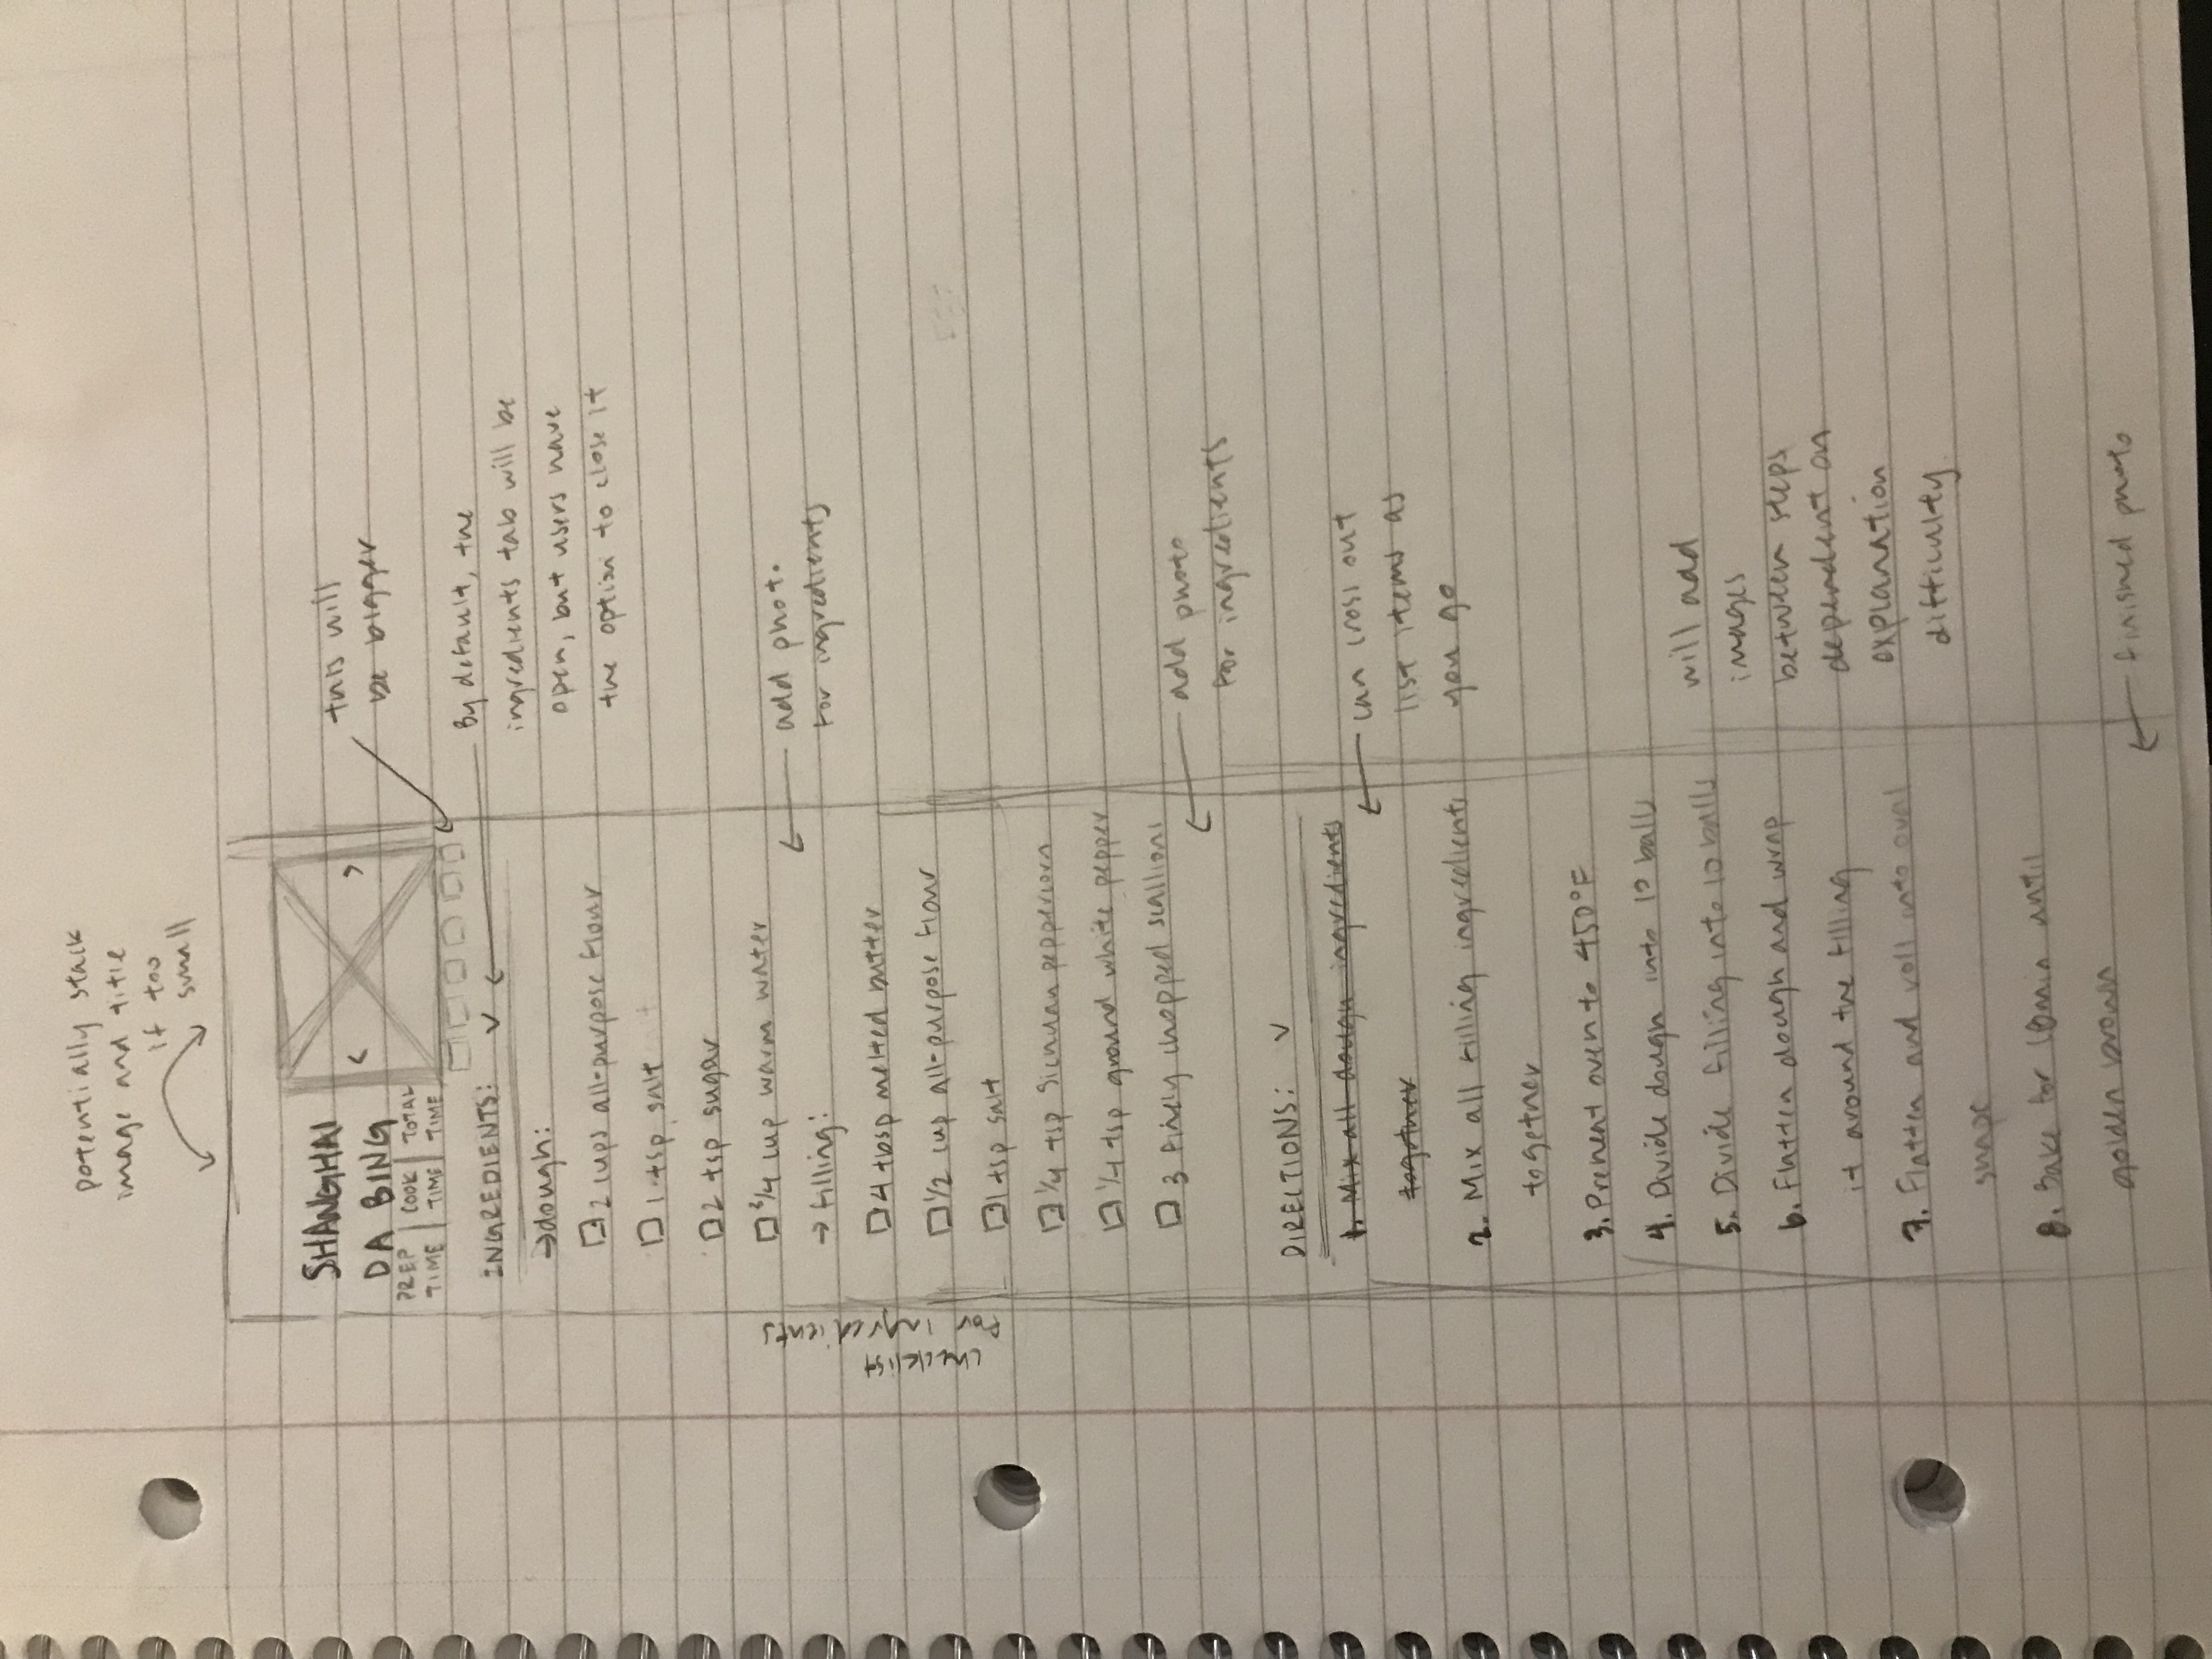 potentially stack
image and title
if too
small
SHANGHAI
DA BING
PREP TIME | COOK TIME | TOTAL TIME
< >
this will
be bigger
INGREDIENTS: v
By default, the
ingredients tab will be
open, but users have
the option to close it
→dough:
2 cups all-purpose flour
1 tsp salt
2 tsp sugar
3/4 cup warm water
add photo
for ingredients
→ filling:
checklist
for ingredients
4 tbsp melted butter
1/2 cup all-purpose flour
1 tsp salt
1/4 tsp Sichuan peppercorn
1/4 tsp ground white pepper
3 finely chopped scallions
add photo
for ingredients
DIRECTIONS: v
1. Mix all dough ingredients
together
can cross out
list items as
you go
2. Mix all filling ingredients
together
3. Preheat oven to 450°F
4. Divide dough into 10 balls
5. Divide filling into 10 balls
6. Flatten dough and wrap
it around the filling
7. Flatten and roll into oval
shape
will add
images
between steps
dependent on
explanation
difficulty
8. Bake for 18min until
golden brown
finished photo